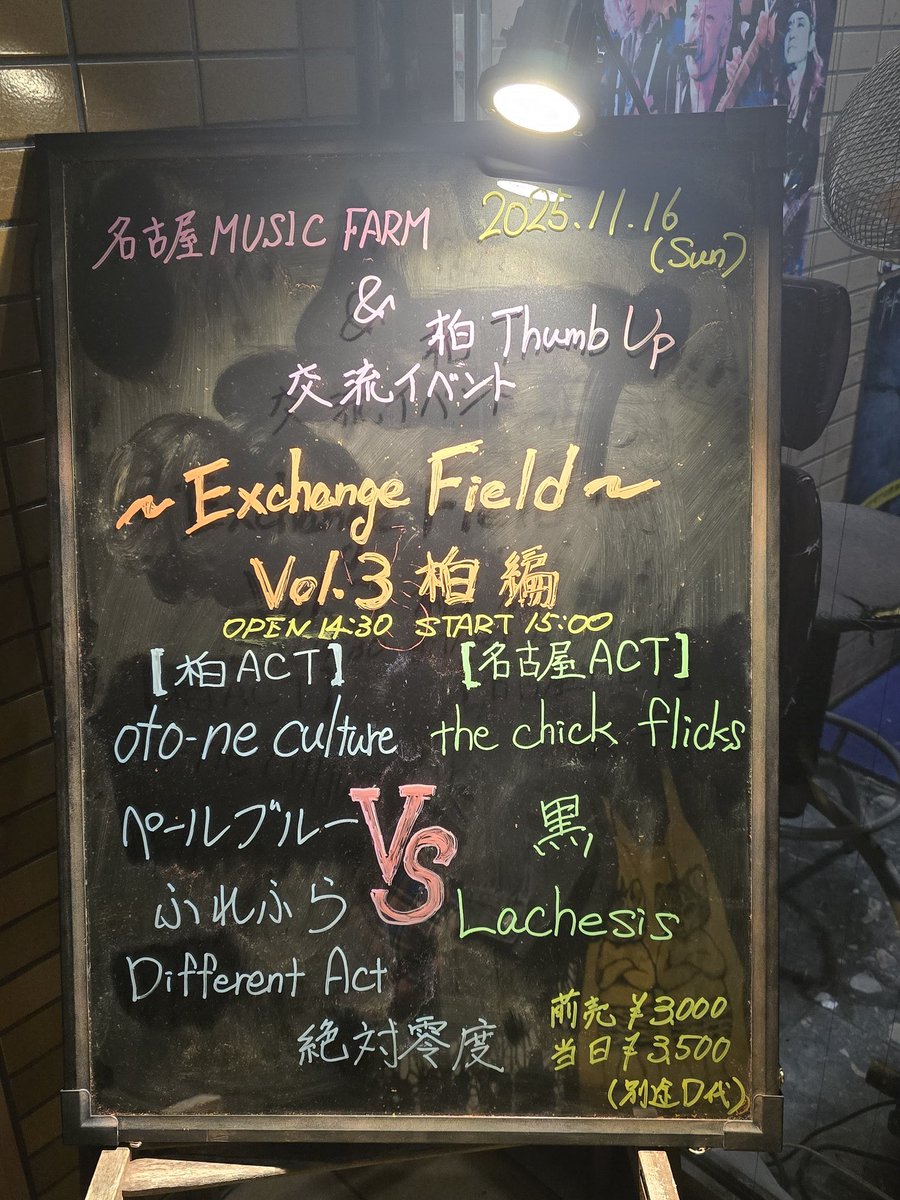 名古屋 MUSIC FARM
2025.11.16
(Sun)
&
柏 Thumb Up
交流イベント
~Exchange Field~
Vol.3 柏編
OPEN 14:30 START 15:00
【柏ACT】
oto-ne culture
ペールブルー
ふれふら
Different Act
絶対零度
VS
【名古屋ACT】
the chick flicks
黒
Lachesis
前売 ¥3,000
当日 ¥3,500
(別途D代)